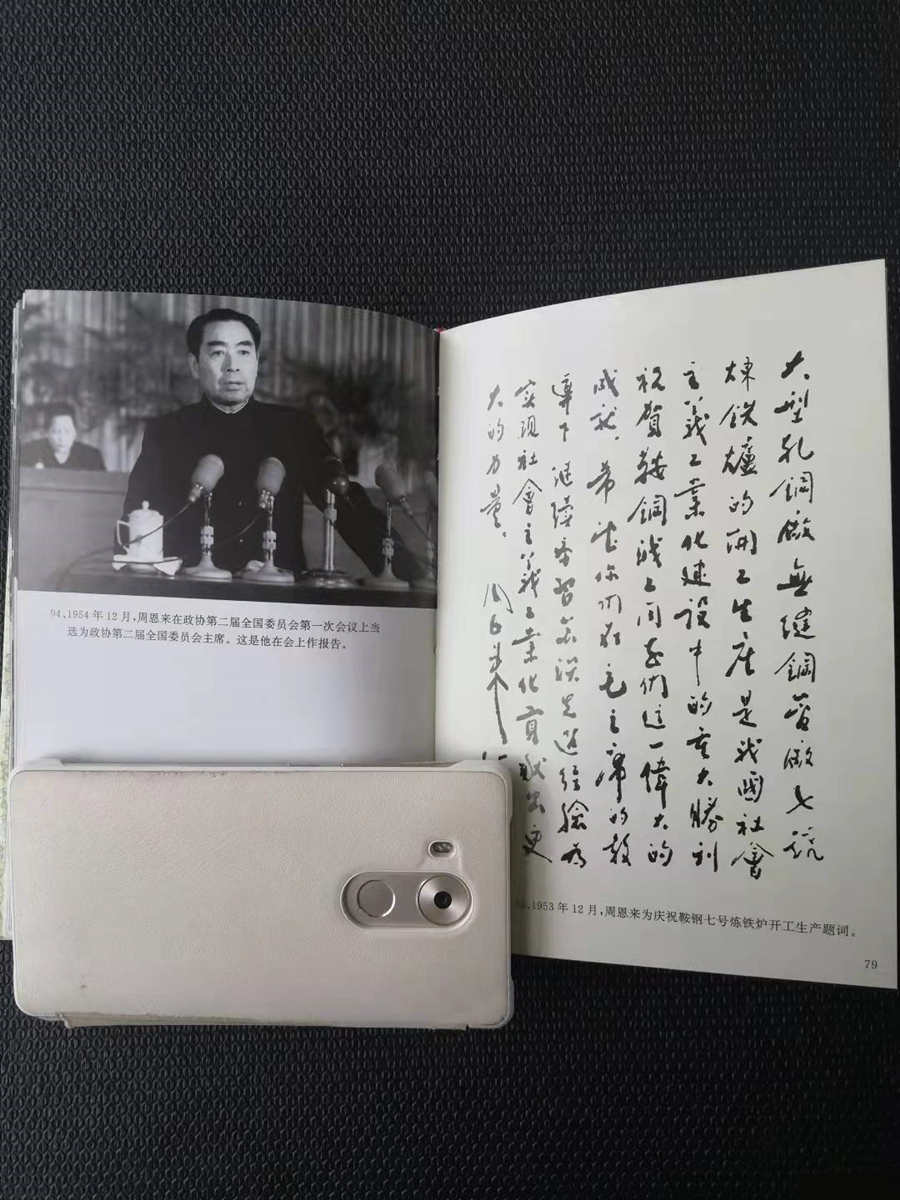 94、1954年12月,周恩来在政协第二届全国委员会第一次会议上当
选为政协第二届全国委员会主席。这是他在会上作报告。
大型轧鋼廠無縫鋼管廠七號
煉铁爐的開工生産是我國社會
主義工業化建設中的重大勝利
祝賀鞍鋼職工同志們這一偉大的
成就,希望你们在毛主席的教
導下继续学習苏联先進經驗为
實现社會主義工業化貢献出更
大的力量。 周恩来
1953年12月,周恩来为庆祝鞍钢七号炼铁炉开工生产题词。
79